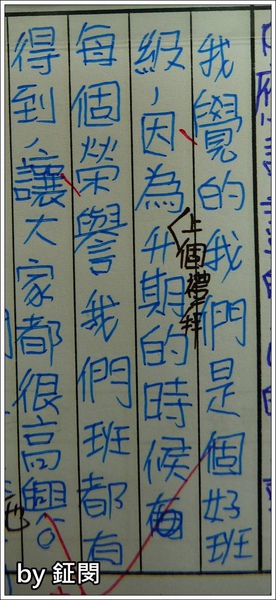 我覺的我們是個好班
級，因為上個禮拜升期的時候
每個榮譽我們班都有
得到，讓大家都很高興。
by 鉦閔